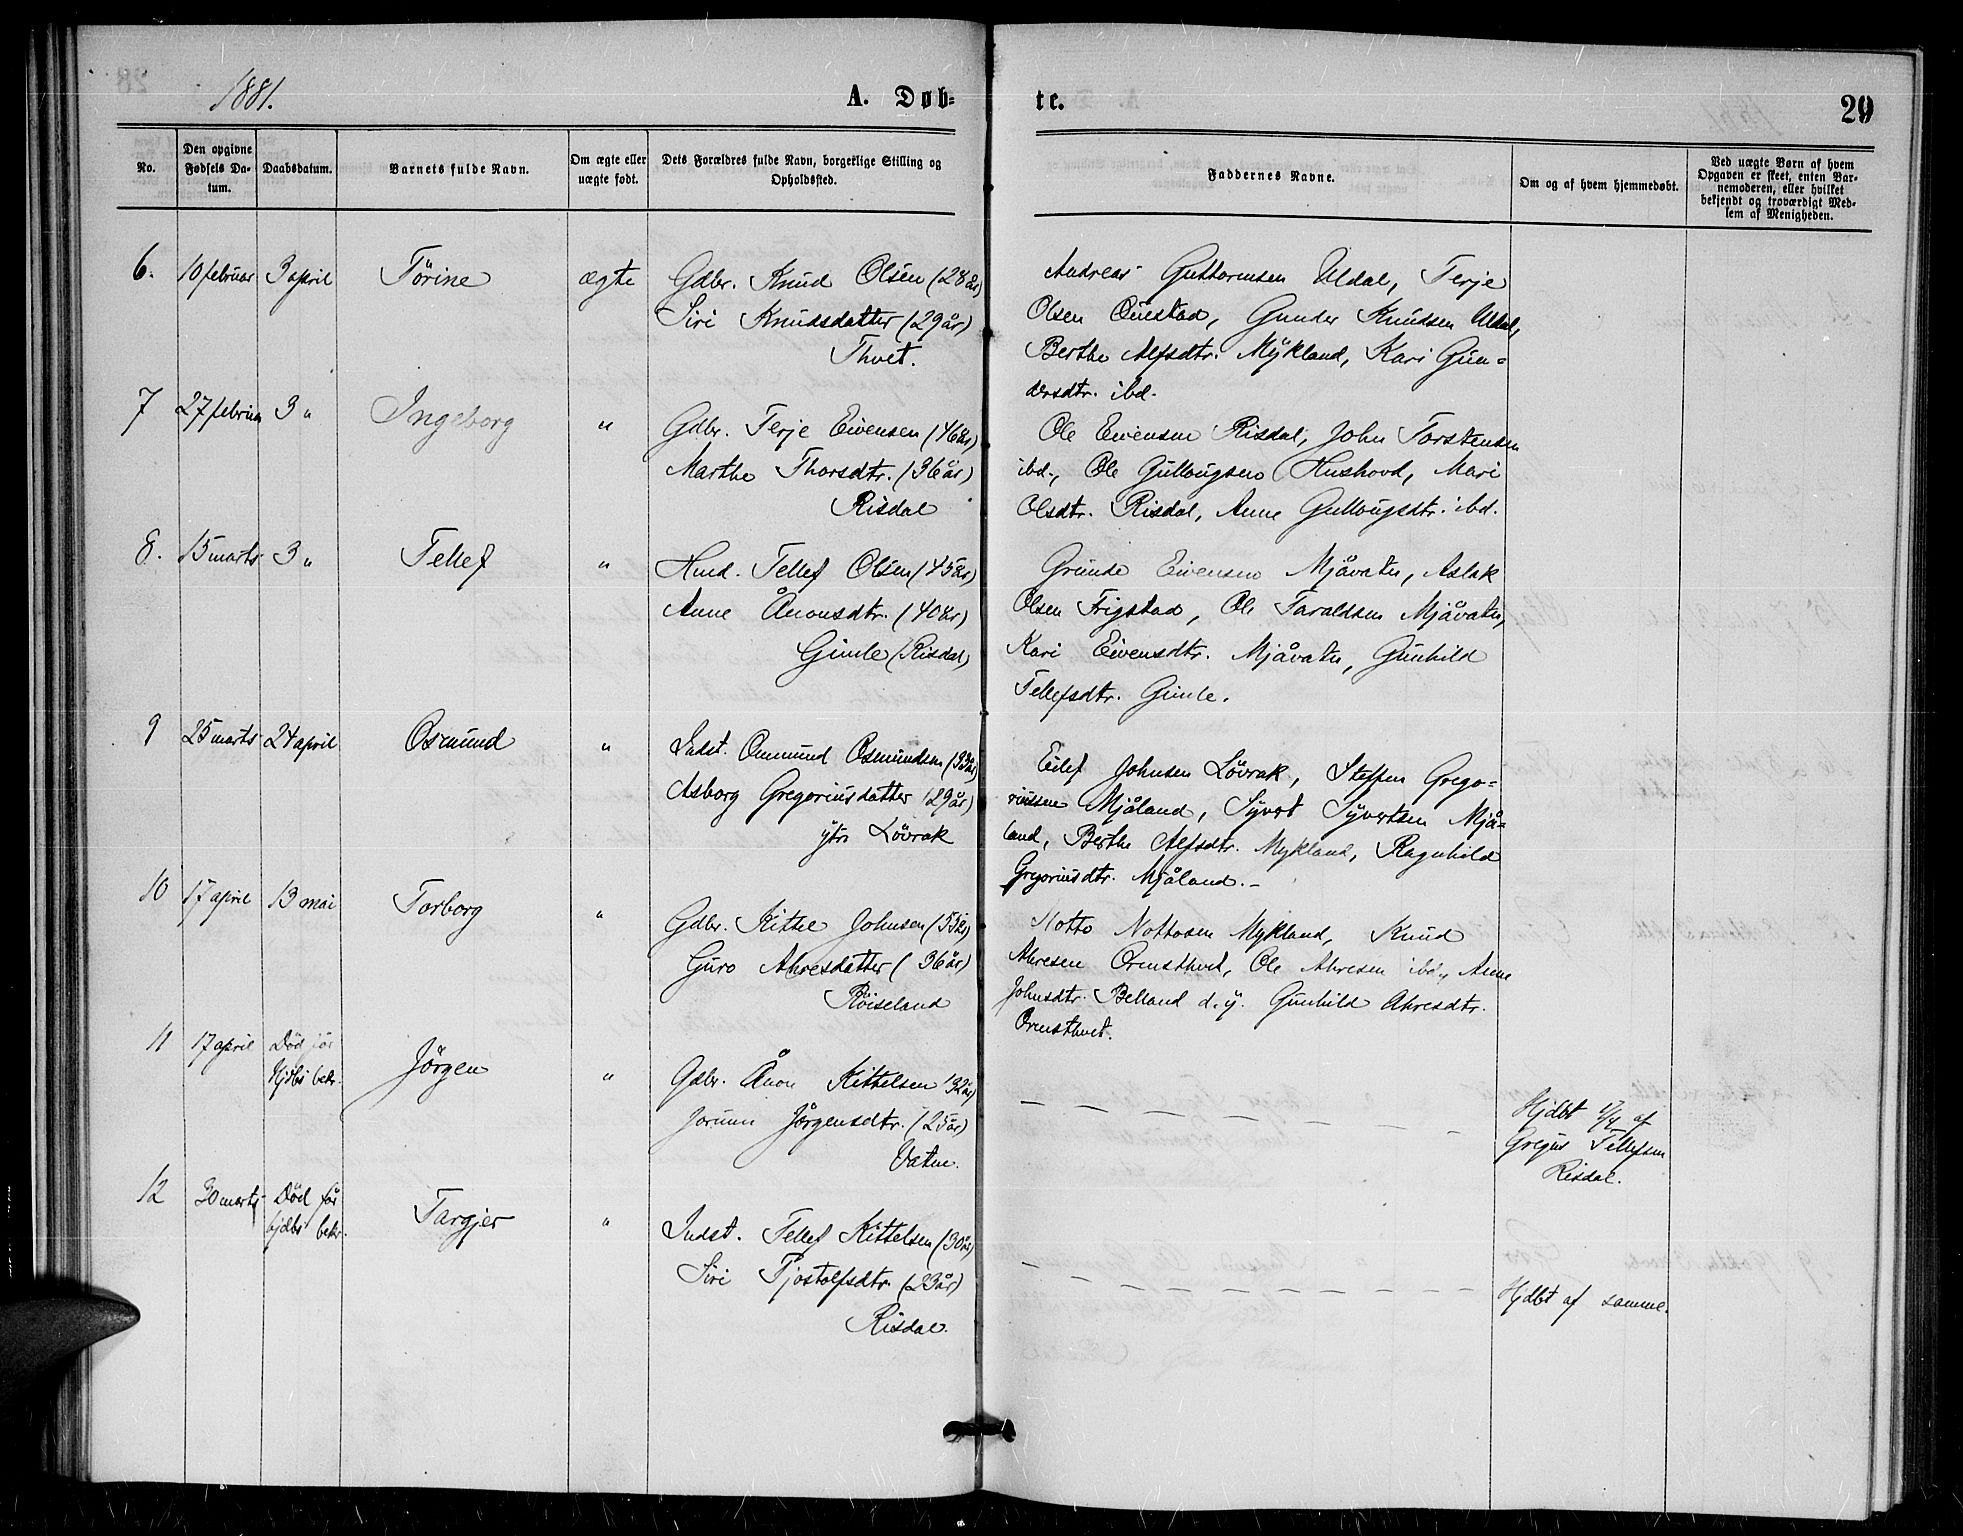 1881.
A. Døb=
te.
29
No.
Den opgivne Fødsels Da-tum.
Daabsdatum.
Barnets fulde Navn.
Om ægte eller uægte født.
Dets Forældres fulde Navn, borgerlige Stilling og Opholdssted.
Faddernes Navne.
Om og af hvem hjemmedøbt.
Ved uægte Børn af hvem Opgaven er skeet, enten Bar-nemoderen, eller hvilket bekjendt og troværdigt Med-lem af Menigheden.
6. 10 februar 3 april Törine ægte Gdbr. Knud Olsen (28 år)
Siri Knudsdatter (29 år)
Thvet.
Andreas Guttormsen Uldal, Terje
Olsen Ouestad, Gunder Knudsen Uldal,
Berthe Alfsdtr. Mykland, Kari Gun=
dersdtr. ibd.
7 27 februar 3 " Ingeborg " Gdbr. Terje Eivensen (46 år)
Marthe Thorsdtr. (36 år)
Risdal
Ole Eivensen Risdal, John Torstensen
ibd., Ole Gullougsen Hushovd, Mari
Olsdtr. Risdal, Anne Gullougsdtr. ibd.
8. 15 marts 3 " Tellef " Hmd. Tellef Olsen (45 år)
Anne Ånonsdtr. (40 år)
Gimle (Risdal)
Grunde Eivensen Mjåvatn, Aslak
Olsen Frigstad, Ole Taraldsen Mjåvatn,
Kari Eivensdtr. Mjåvatn, Gunhild
Tellefsdtr. Gimle.
9 25 marts 24 april Osmund " Indst. Ommund Osmundsen (33 år)
Asborg Gregoriusdatter (29 år)
ytr. Lövrak
Eilef Johnsen Lövrak, Steffen Grego=
riussen Mjåland, Syvert Syvertsen Mjå=
land, Berthe Alfsdtr. Mykland, Ragnhild
Gregoriusdtr. Mjåland.-
10 17 april 13 mai Torborg " Gdbr. Kittel Johnsen (55 år)
Guro Ahresdatter (36 år)
Röiseland
Notto Nottosen Mykland, Knud
Ahresen Ormsthvet, Ole Ahresen ibd., Anne
Johnsdtr. Belland d. y. Gunhild Ahresdtr.
Ormsthvet.
11 17 april Död för
hjdbs bekr. Jörgen " Gdbr. Ånon Kittelsen (32 år)
Jorunn Jörgensdtr. (25 år)
Vatne.
Hjdbt 17/4 af
Gregus Tellefsen
Risdal.
12 30 marts Död för
hjdbs bekr. Targjer " Indst. Tellef Kittelsen (30 år)
Siri Tjostolfsdtr. (23 år)
Risdal.
Hjdbt af samme.